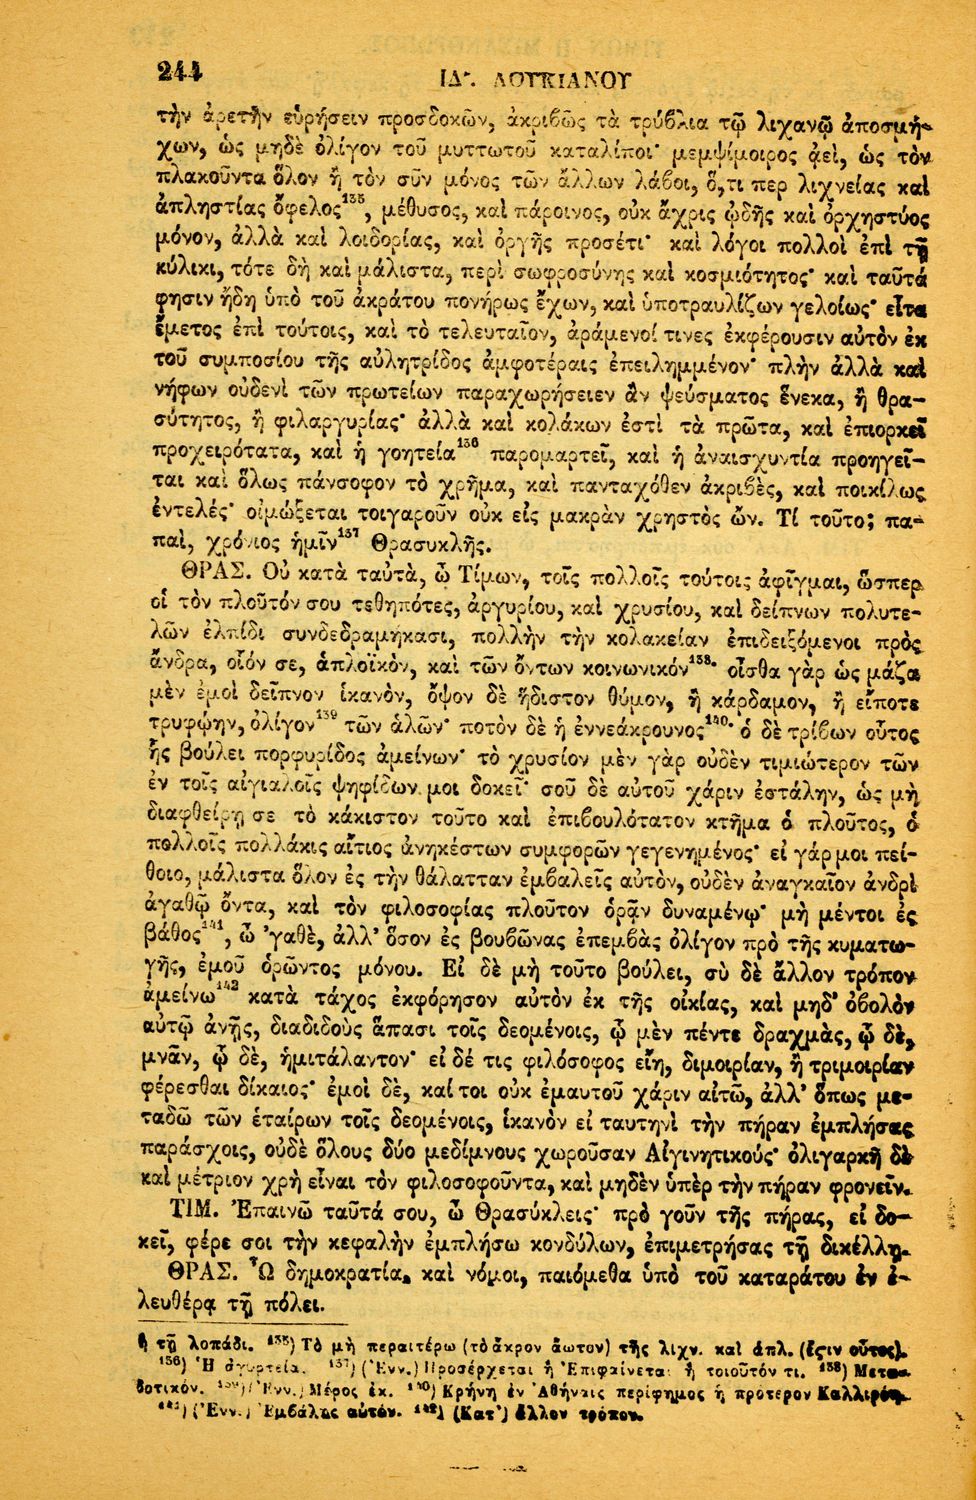 244
ΙΔʹ. ΛΟΥΚΙΑΝΟΥ
τὴν ἀρετὴν εὑρήσειν προσδοκῶν, ἀκριβῶς τὰ τρύβλια τῷ λιχανῷ ἀποσμή-
χων, ὡς μηδὲ ὀλίγον τοῦ μυττωτοῦ καταλίποι· μεμψίμοιρος ἀεὶ, ὡς τὸν
πλακοῦντα ὅλον ἢ τὸν σῦν μόνος τῶν ἄλλων λάβοι, ὅ,τι περ λιχνείας καὶ
ἀπληστίας ὄφελος¹³⁵, μέθυσος, καὶ πάροινος, οὐκ ἄχρις ᾠδῆς καὶ ὀρχηστύος
μόνον, ἀλλὰ καὶ λοιδορίας, καὶ ὀργῆς προσέτι· καὶ λόγοι πολλοὶ ἐπὶ τῇ
κύλικι, τότε δὴ καὶ μάλιστα, περὶ σωφροσύνης καὶ κοσμιότητος· καὶ ταῦτά
φησιν ἤδη ὑπὸ τοῦ ἀκράτου πονήρως ἔχων, καὶ ὑποτραυλίζων γελοίως· εἶτα
ἔμετος ἐπὶ τούτοις, καὶ τὸ τελευταῖον, ἀράμενοί τινες ἐκφέρουσιν αὐτὸν ἐκ
τοῦ συμποσίου τῆς αὐλητρίδος ἀμφοτέραις ἐπειλημμένον· πλὴν ἀλλὰ καὶ
νήφων οὐδενὶ τῶν πρωτείων παραχωρήσειεν ἂν ψεύσματος ἕνεκα, ἢ θρα-
σύτητος, ἢ φιλαργυρίας· ἀλλὰ καὶ κολάκων ἐστὶ τὰ πρῶτα, καὶ ἐπιορκεῖ
προχειρότατα, καὶ ἡ γοητεία¹³⁶ παρομαρτεῖ, καὶ ἡ ἀναισχυντία προηγεῖ-
ται καὶ ὅλως πάνσοφον τὸ χρῆμα, καὶ πανταχόθεν ἀκριβὲς, καὶ ποικίλως
ἐντελές· οἰμώξεται τοιγαροῦν οὐκ εἰς μακρὰν χρηστὸς ὤν. Τί τοῦτο; πα-
παὶ, χρόνιος ἡμῖν¹³⁷ Θρασυκλῆς.
ΘΡΑΣ. Οὐ κατὰ ταὐτὰ, ὦ Τίμων, τοῖς πολλοῖς τούτοις ἀφῖγμαι, ὥσπερ
οἱ τὸν πλοῦτόν σου τεθηπότες, ἀργυρίου, καὶ χρυσίου, καὶ δείπνων πολυτε-
λῶν ἐλπίδι συνδεδραμήκασι, πολλὴν τὴν κολακείαν ἐπιδειξόμενοι πρὸς
ἄνδρα, οἷόν σε, ἁπλοϊκὸν, καὶ τῶν ὄντων κοινωνικόν¹³⁸· οἶσθα γὰρ ὡς μάζα
μὲν ἐμοὶ δεῖπνον ἱκανὸν, ὄψον δὲ ἥδιστον θύμον, ἢ κάρδαμον, ἢ εἴποτε
τρυφῴην, ὀλίγον¹³⁹ τῶν ἁλῶν· ποτὸν δὲ ἡ ἐννεάκρουνος¹⁴⁰· ὁ δὲ τρίβων οὗτος
ἧς βούλει πορφυρίδος ἀμείνων· τὸ χρυσίον μὲν γὰρ οὐδὲν τιμιώτερον τῶν
ἐν τοῖς αἰγιαλοῖς ψηφίδων. μοι δοκεῖ· σοῦ δὲ αὐτοῦ χάριν ἐστάλην, ὡς μὴ
διαφθείρῃ σε τὸ κάκιστον τοῦτο καὶ ἐπιβουλότατον κτῆμα ὁ πλοῦτος, ὁ
πολλοῖς πολλάκις αἴτιος ἀνηκέστων συμφορῶν γεγενημένος· εἰ γάρ μοι πεί-
θοιο, μάλιστα ὅλον ἐς τὴν θάλατταν ἐμβαλεῖς αὐτὸν, οὐδὲν ἀναγκαῖον ἀνδρὶ
ἀγαθῷ ὄντα, καὶ τὸν φιλοσοφίας πλοῦτον ὁρᾷν δυναμένῳ· μὴ μέντοι ἐς
βάθος¹⁴¹, ὦ 'γαθὲ, ἀλλ' ὅσον ἐς βουβῶνας ἐπεμβὰς ὀλίγον πρὸ τῆς κυματω-
γῆς, ἐμοῦ ὁρῶντος μόνου. Εἰ δὲ μὴ τοῦτο βούλει, σὺ δὲ ἄλλον τρόπον
ἀμείνω¹⁴² κατὰ τάχος ἐκφόρησον αὐτὸν ἐκ τῆς οἰκίας, καὶ μηδ' ὀβολὸν
αὑτῷ ἀνῇς, διαδιδοὺς ἅπασι τοῖς δεομένοις, ᾧ μὲν πέντε δραχμὰς, ᾧ δὲ,
μνᾶν, ᾧ δὲ, ἡμιτάλαντον· εἰ δέ τις φιλόσοφος εἴη, διμοιρίαν, ἢ τριμοιρίαν
φέρεσθαι δίκαιος· ἐμοὶ δὲ, καί τοι οὐκ ἐμαυτοῦ χάριν αἰτῶ, ἀλλ' ὅπως με-
ταδῶ τῶν ἑταίρων τοῖς δεομένοις, ἱκανὸν εἰ ταυτηνὶ τὴν πήραν ἐμπλήσας
παράσχοις, οὐδὲ ὅλους δύο μεδίμνους χωροῦσαν Αἰγινητικούς· ὀλιγαρκῆ δὲ
καὶ μέτριον χρὴ εἶναι τὸν φιλοσοφοῦντα, καὶ μηδὲν ὑπὲρ τὴν πήραν φρονεῖν.
ΤΙΜ. Ἐπαινῶ ταῦτά σου, ὦ Θρασύκλεις· πρὸ γοῦν τῆς πήρας, εἰ δο-
κεῖ, φέρε σοι τὴν κεφαλὴν ἐμπλήσω κονδύλων, ἐπιμετρήσας τῇ δικέλλῃ.
ΘΡΑΣ. Ὦ δημοκρατία, καὶ νόμοι, παιόμεθα ὑπὸ τοῦ καταράτου ἐν ἐ-
λευθέρᾳ τῇ πόλει.
ἢ τῇ λοπάδι. ¹³⁵) Τὸ μὴ περαιτέρω (τὸ ἄκρον ἄωτον) τῆς λιχν. καὶ ἀπλ. (ἐςιν οὗτος).
¹³⁶) Ἡ ἀγυρτεία. ¹³⁷) (Ἐνν.) Προσέρχεται ἢ Ἐπιφαίνεται ἢ τοιοῦτόν τι. ¹³⁸) Μετα-
δοτικόν. ¹³⁹) (Ἐνν.) Μέρος ἐκ. ¹⁴⁰) Κρήνη ἐν Ἀθήναις περίφημος ἡ πρότερον Καλλιρόη.
¹⁴¹) (Ἐνν.) Ἐμβάλῃς αὐτόν. ¹⁴²) (Κατ') ἄλλον τρόπον.